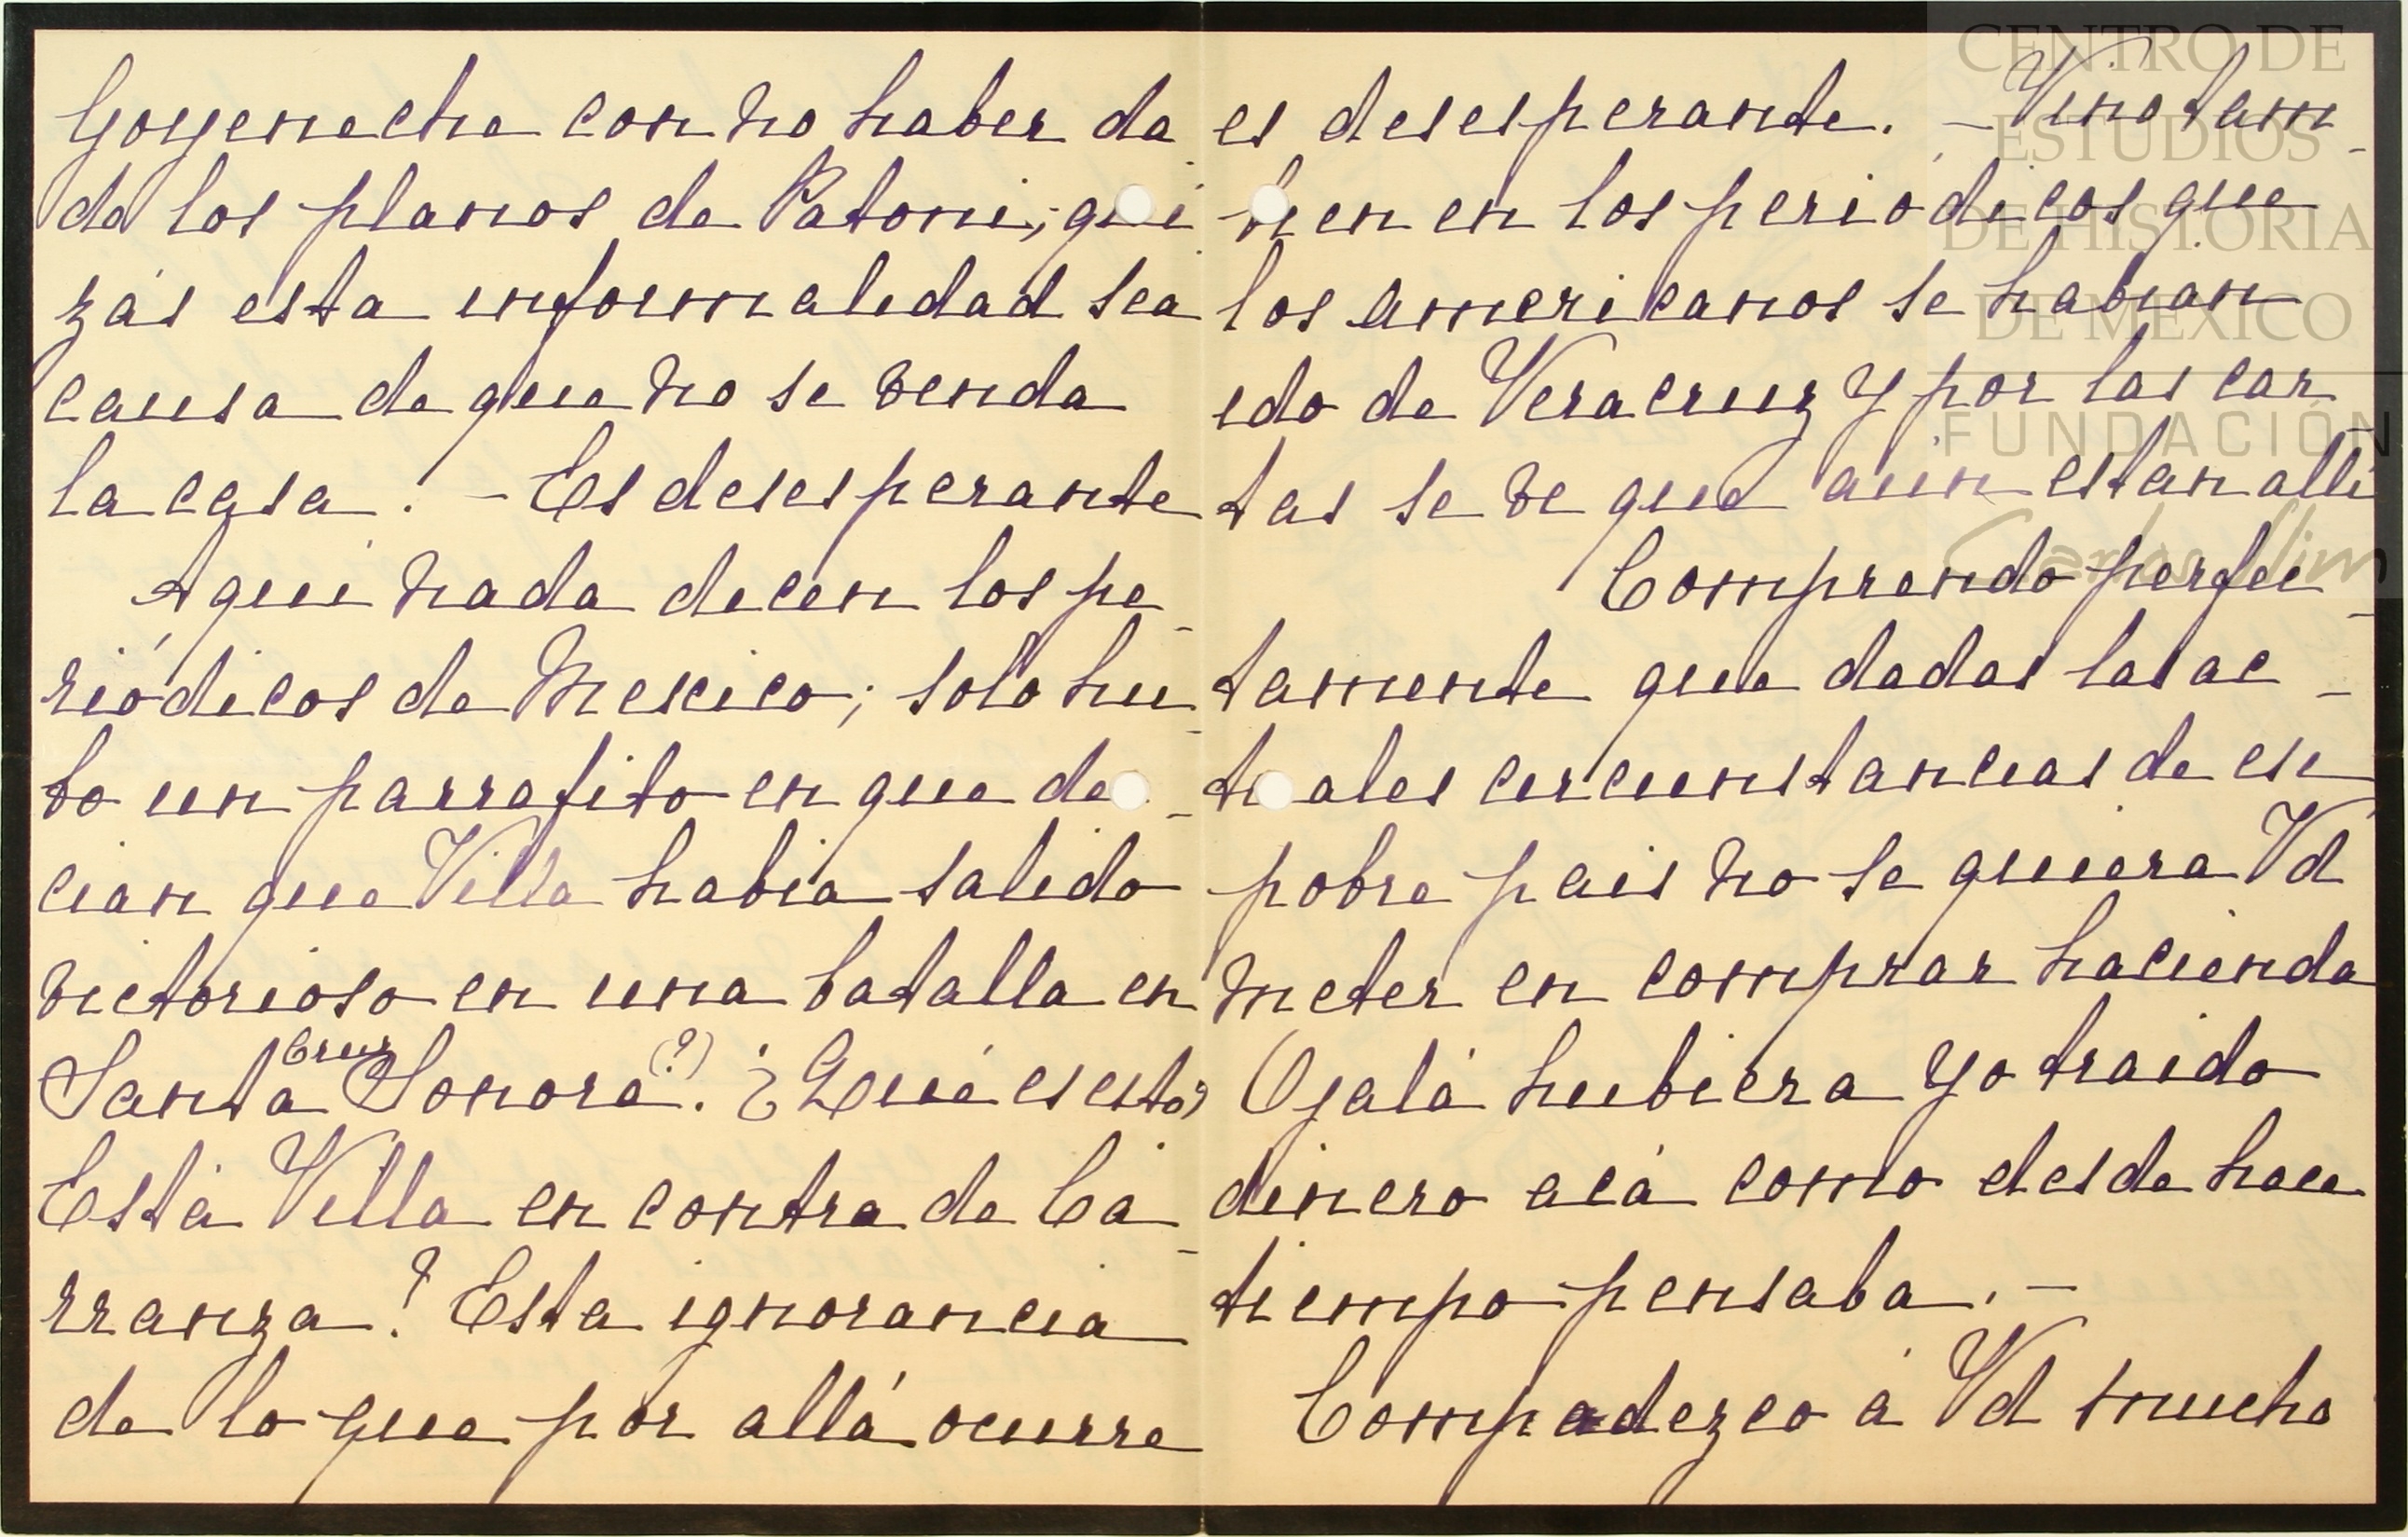 Goyeneche con no haber da
do los planos de Patoni; qui
zás esta informalidad sea
causa de que no se venda
la casa. - Es desesperante
Aqui nada dicen los pe-
riódicos de Mexico; solo hu-
bo un parrafito en que de-
cian que Villa habia salido
victorioso en una batalla en
Santa Cruz Sonora (?). ¿Qué es esto?
Está Villa en contra de Ca-
rranza? Esta ignorancia
de lo que por allá ocurre
es desesperante. - Vino tam-
bien en los periódicos que
los americanos se habian
ido de Veracruz y por las car
tas se ve que aún estan alli
Comprendo perfec-
tamente que dadas las ac-
tuales circunstancias de ese
pobre pais no se quiera Vd
meter en comprar hacienda
Ojalá hubiera yo traido
dinero acá como desde hace
tiempo pensaba. -
Compadezco á Vd mucho
CENTRO DE
ESTUDIOS
DE HISTORIA
DE MEXICO
FUNDACIÓN
Carlos Slim